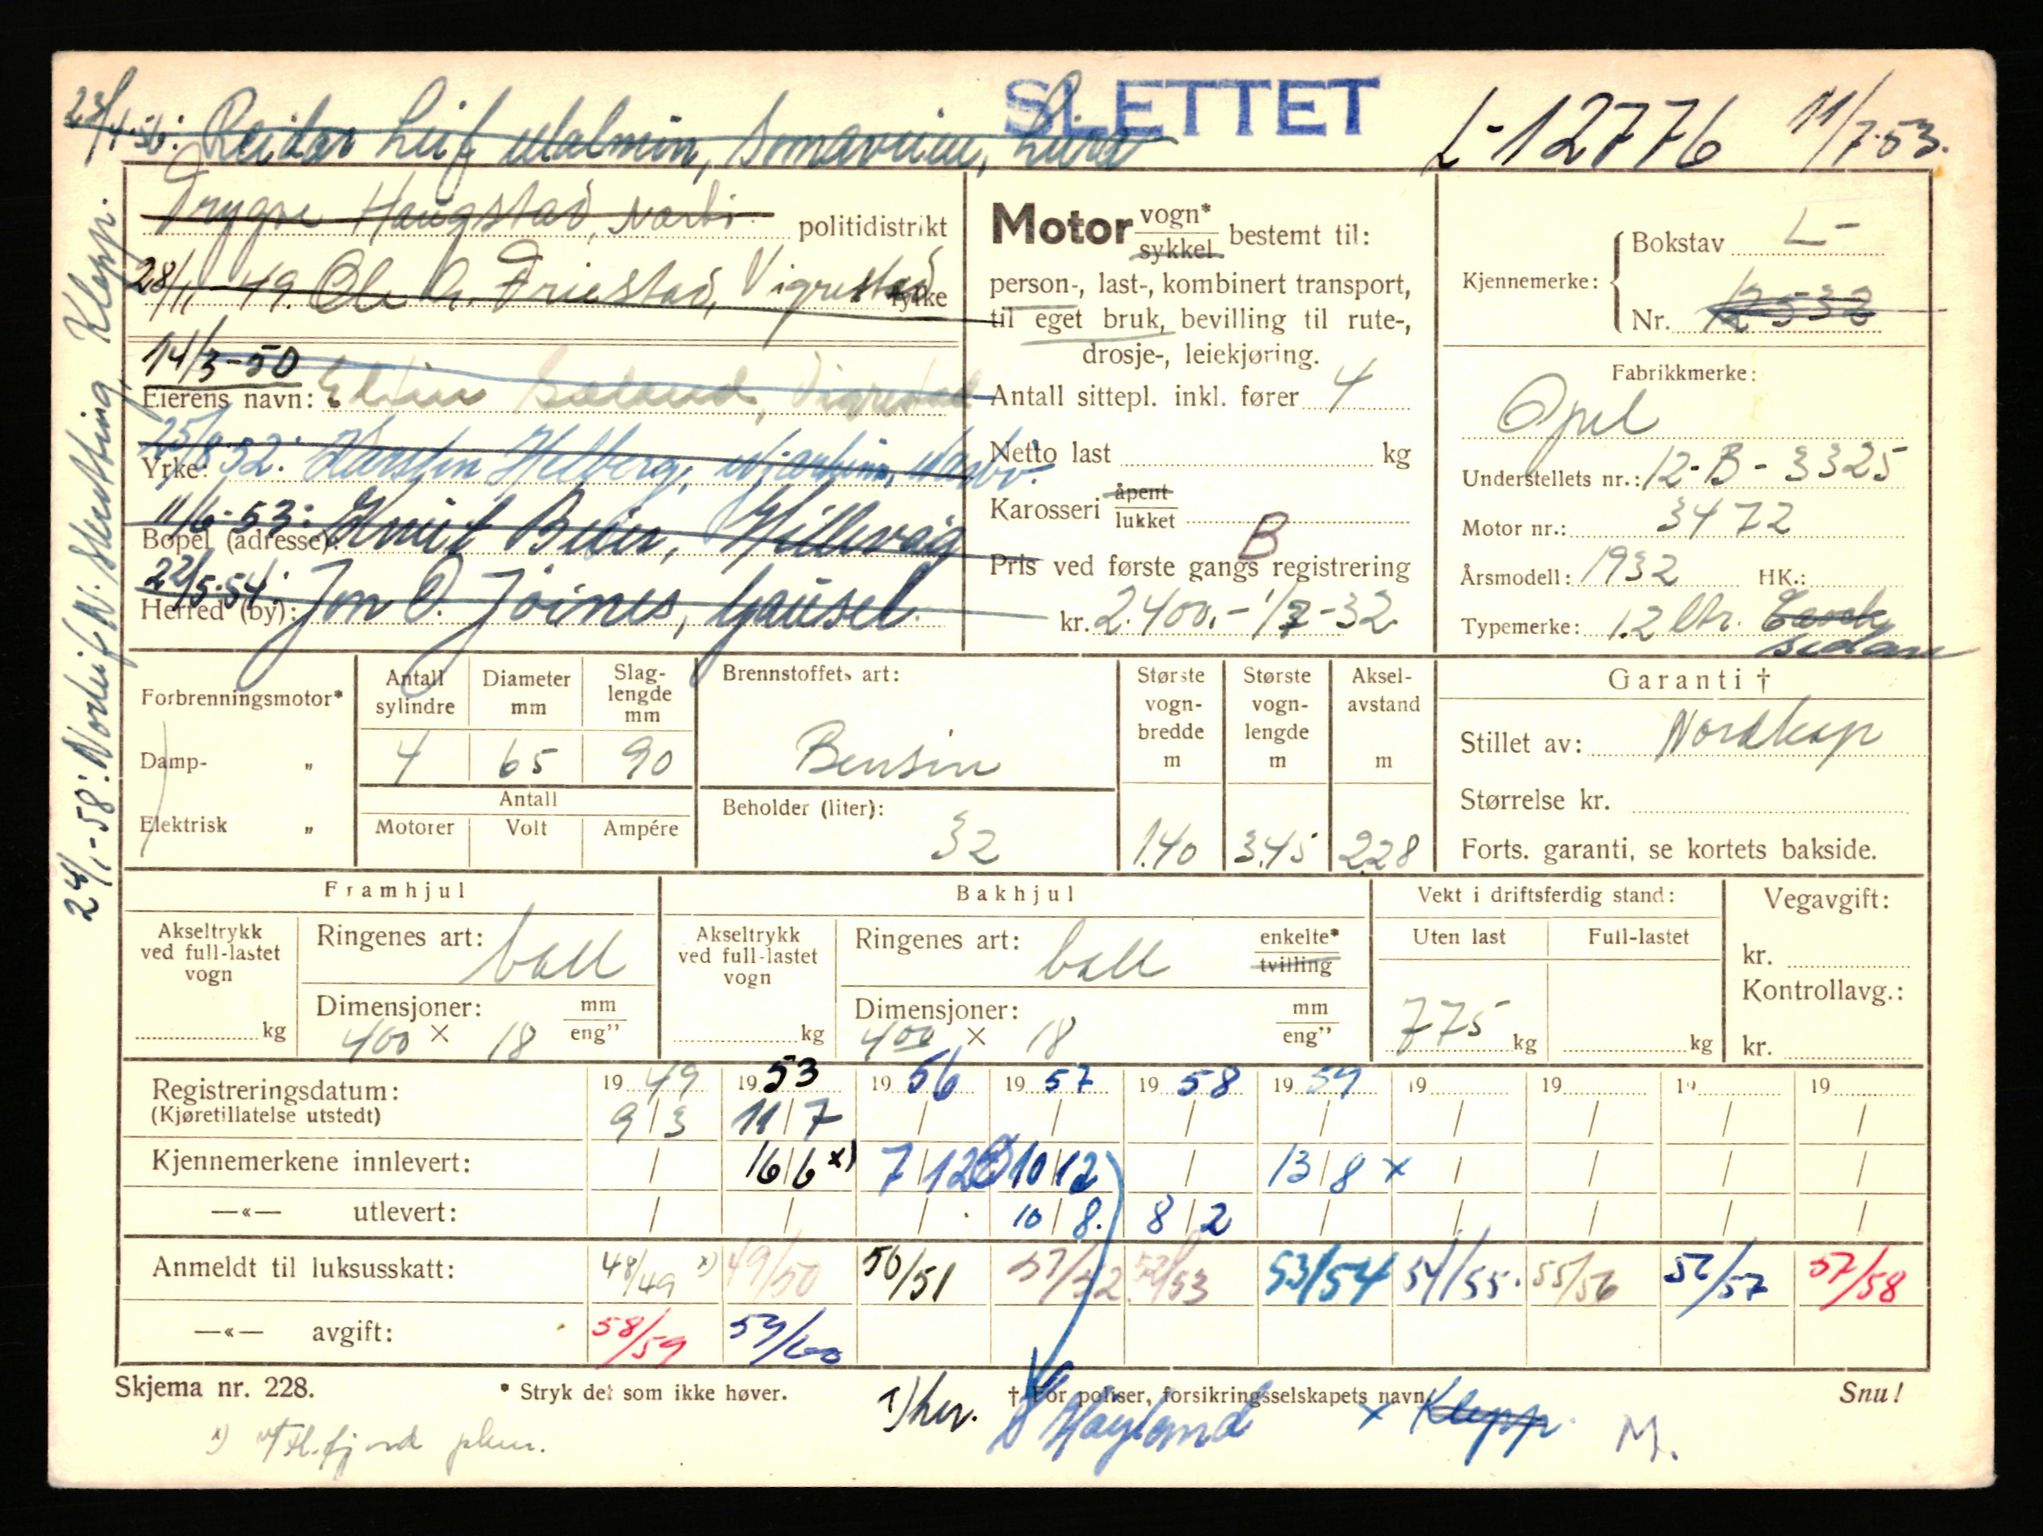 SLETTET
23/4-56: Reidar Leif Malmin, Somaveien, Lura
L-12776 11/7-53.
Trygve Haugstad, Nærbø politidistrikt
28/11-49. Ole A. Friestad, Vigrestad fylke
14/3-50
Eierens navn: Elfin Sæland, Vigrestad
25/8-52. Karsten Helberg, Nærbø.
Yrke:
11/6-53: Knut Beier, Hillevåg
Bopel (adresse):
22/5-54: Jon O. Joines, Gausel.
Herred (by):
24/1-58: Norleif N. Skretting, Klepp.
Motor vogn* sykkel bestemt til:
person-, last-, kombinert transport,
til eget bruk, bevilling til rute-,
drosje-, leiekjøring.
Antall sittepl. inkl. fører 4
Netto last kg
Karosseri åpent lukket
B
Pris ved første gangs registrering
kr. 2.400.- 1/7-32
Kjennemerke: Bokstav L-
Nr. 12532
Fabrikkmerke:
Opel
Understellets nr.: 12-B-3325
Motor nr.: 3472
Årsmodell: 1932 HK.:
Typemerke: 1.2 ltr. sedan
Forbrenningsmotor*
Damp- „
Elektrisk „
Antall sylindre Diameter mm Slaglengde mm
4 65 90
Antall
Motorer Volt Ampére
Brennstoffets art:
Bensin
Beholder (liter):
32
Største vognbredde m Største vognlengde m Akselavstand m
1.40 3.45 2.28
Garanti †
Stillet av: Nordkap
Størrelse kr.
Forts. garanti, se kortets bakside.
Framhjul Bakhjul Vekt i driftsferdig stand: Vegavgift:
Akseltrykk ved full-lastet vogn kg
Ringenes art: ball
Dimensjoner: mm eng”
400 × 18
Akseltrykk ved full-lastet vogn kg
Ringenes art: ball enkelte* tvilling
Dimensjoner: mm eng”
400 × 18
Uten last Full-lastet
775 kg kg
kr.
Kontrollavg.:
kr.
Registreringsdatum: 1949 1953 1956 1957 1958 1959 19 19 19 19
(Kjøretillatelse utstedt) 9/3 11/7 / / / / / / / /
Kjennemerkene innlevert: / 16/6 x) 7/12 10/12 / 13/8 x / / / /
—«— utlevert: / / / 10/8. 8/2 / / / / /
Anmeldt til luksusskatt: 48/49 x) 49/50 50/51 51/52 52/53 53/54 54/55. 55/56 56/57 57/58
—«— avgift: 58/59 59/60
Skjema nr. 228. * Stryk det som ikke høver. † For poliser, forsikringsselskapets navn. Snu!
1) her. Høyland x Klepp. M.